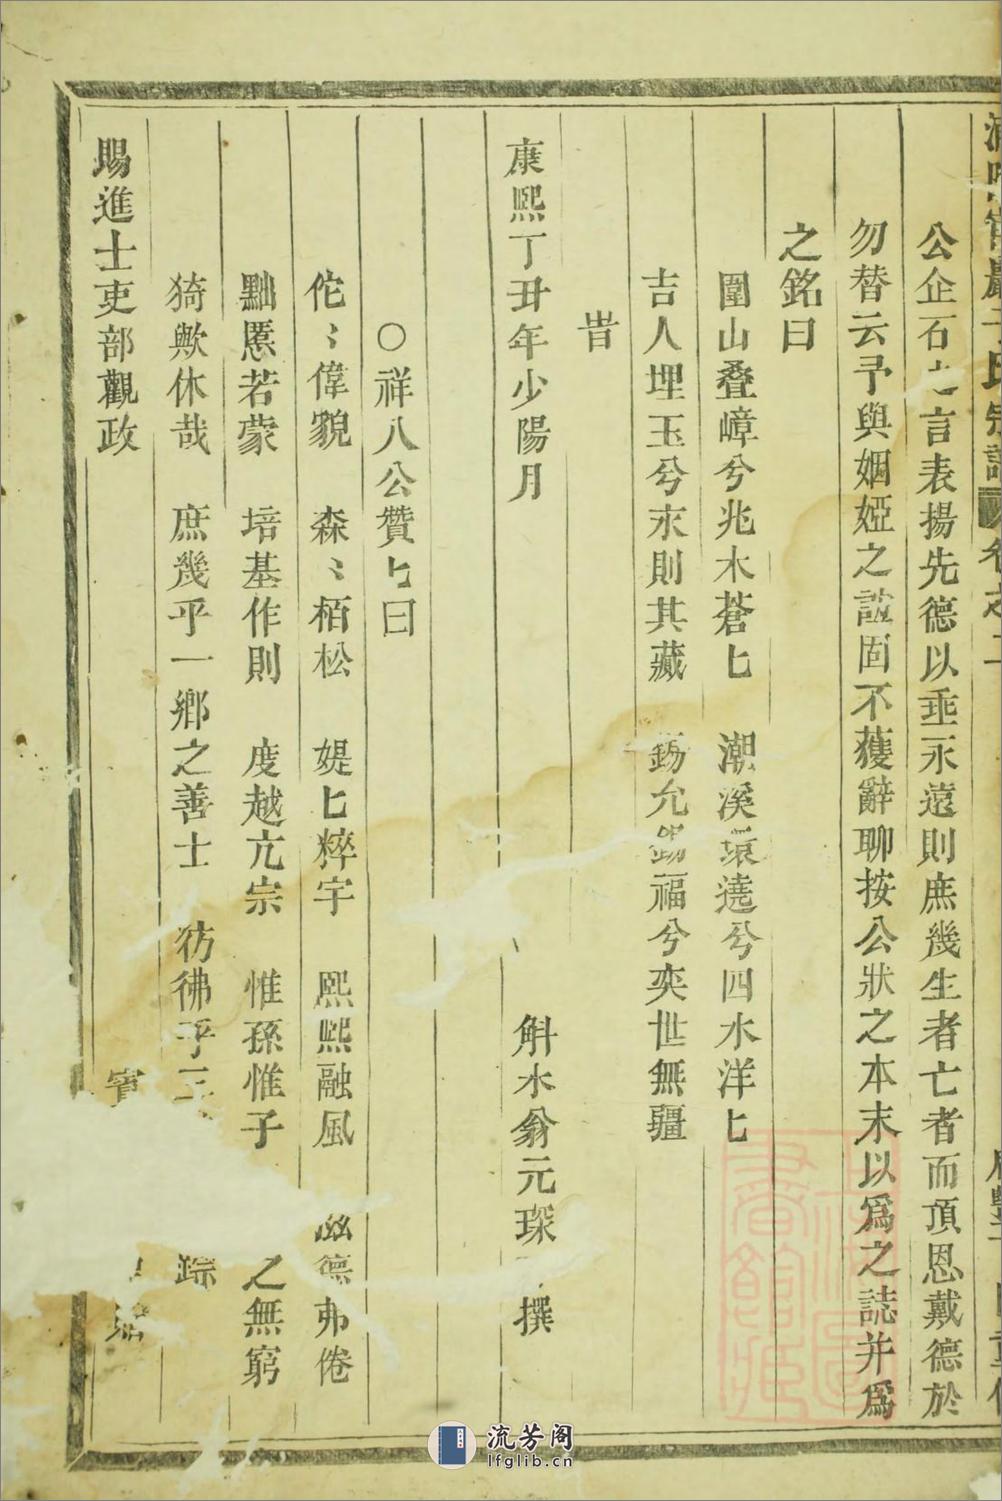 公企石之言表揚先德以垂永遠則庶幾生者亡者而頂恩戴德於
勿替云予與姻婭之誼固不獲辭聊按公狀之本末以爲之誌并爲
之銘曰
圍山叠嶂兮兆木蒼匕 潮溪環遶兮四水洋匕
吉人埋玉兮永則其藏 錫允錫福兮奕世無疆
旹
康熙丁丑年少陽月 斛水翁元琛 撰
○祥八公贊匕曰
佗〻偉貌 森〻栢松 媞匕粹宇 熙熙融風 滋德弗倦
黜慝若蒙 培基作則 度越亢宗 惟孫惟子 之無窮
猗歟休哉 庶幾乎一鄉之善士 彷彿乎三 踪
賜進士吏部觀政
流芳阁
lfglib.cn